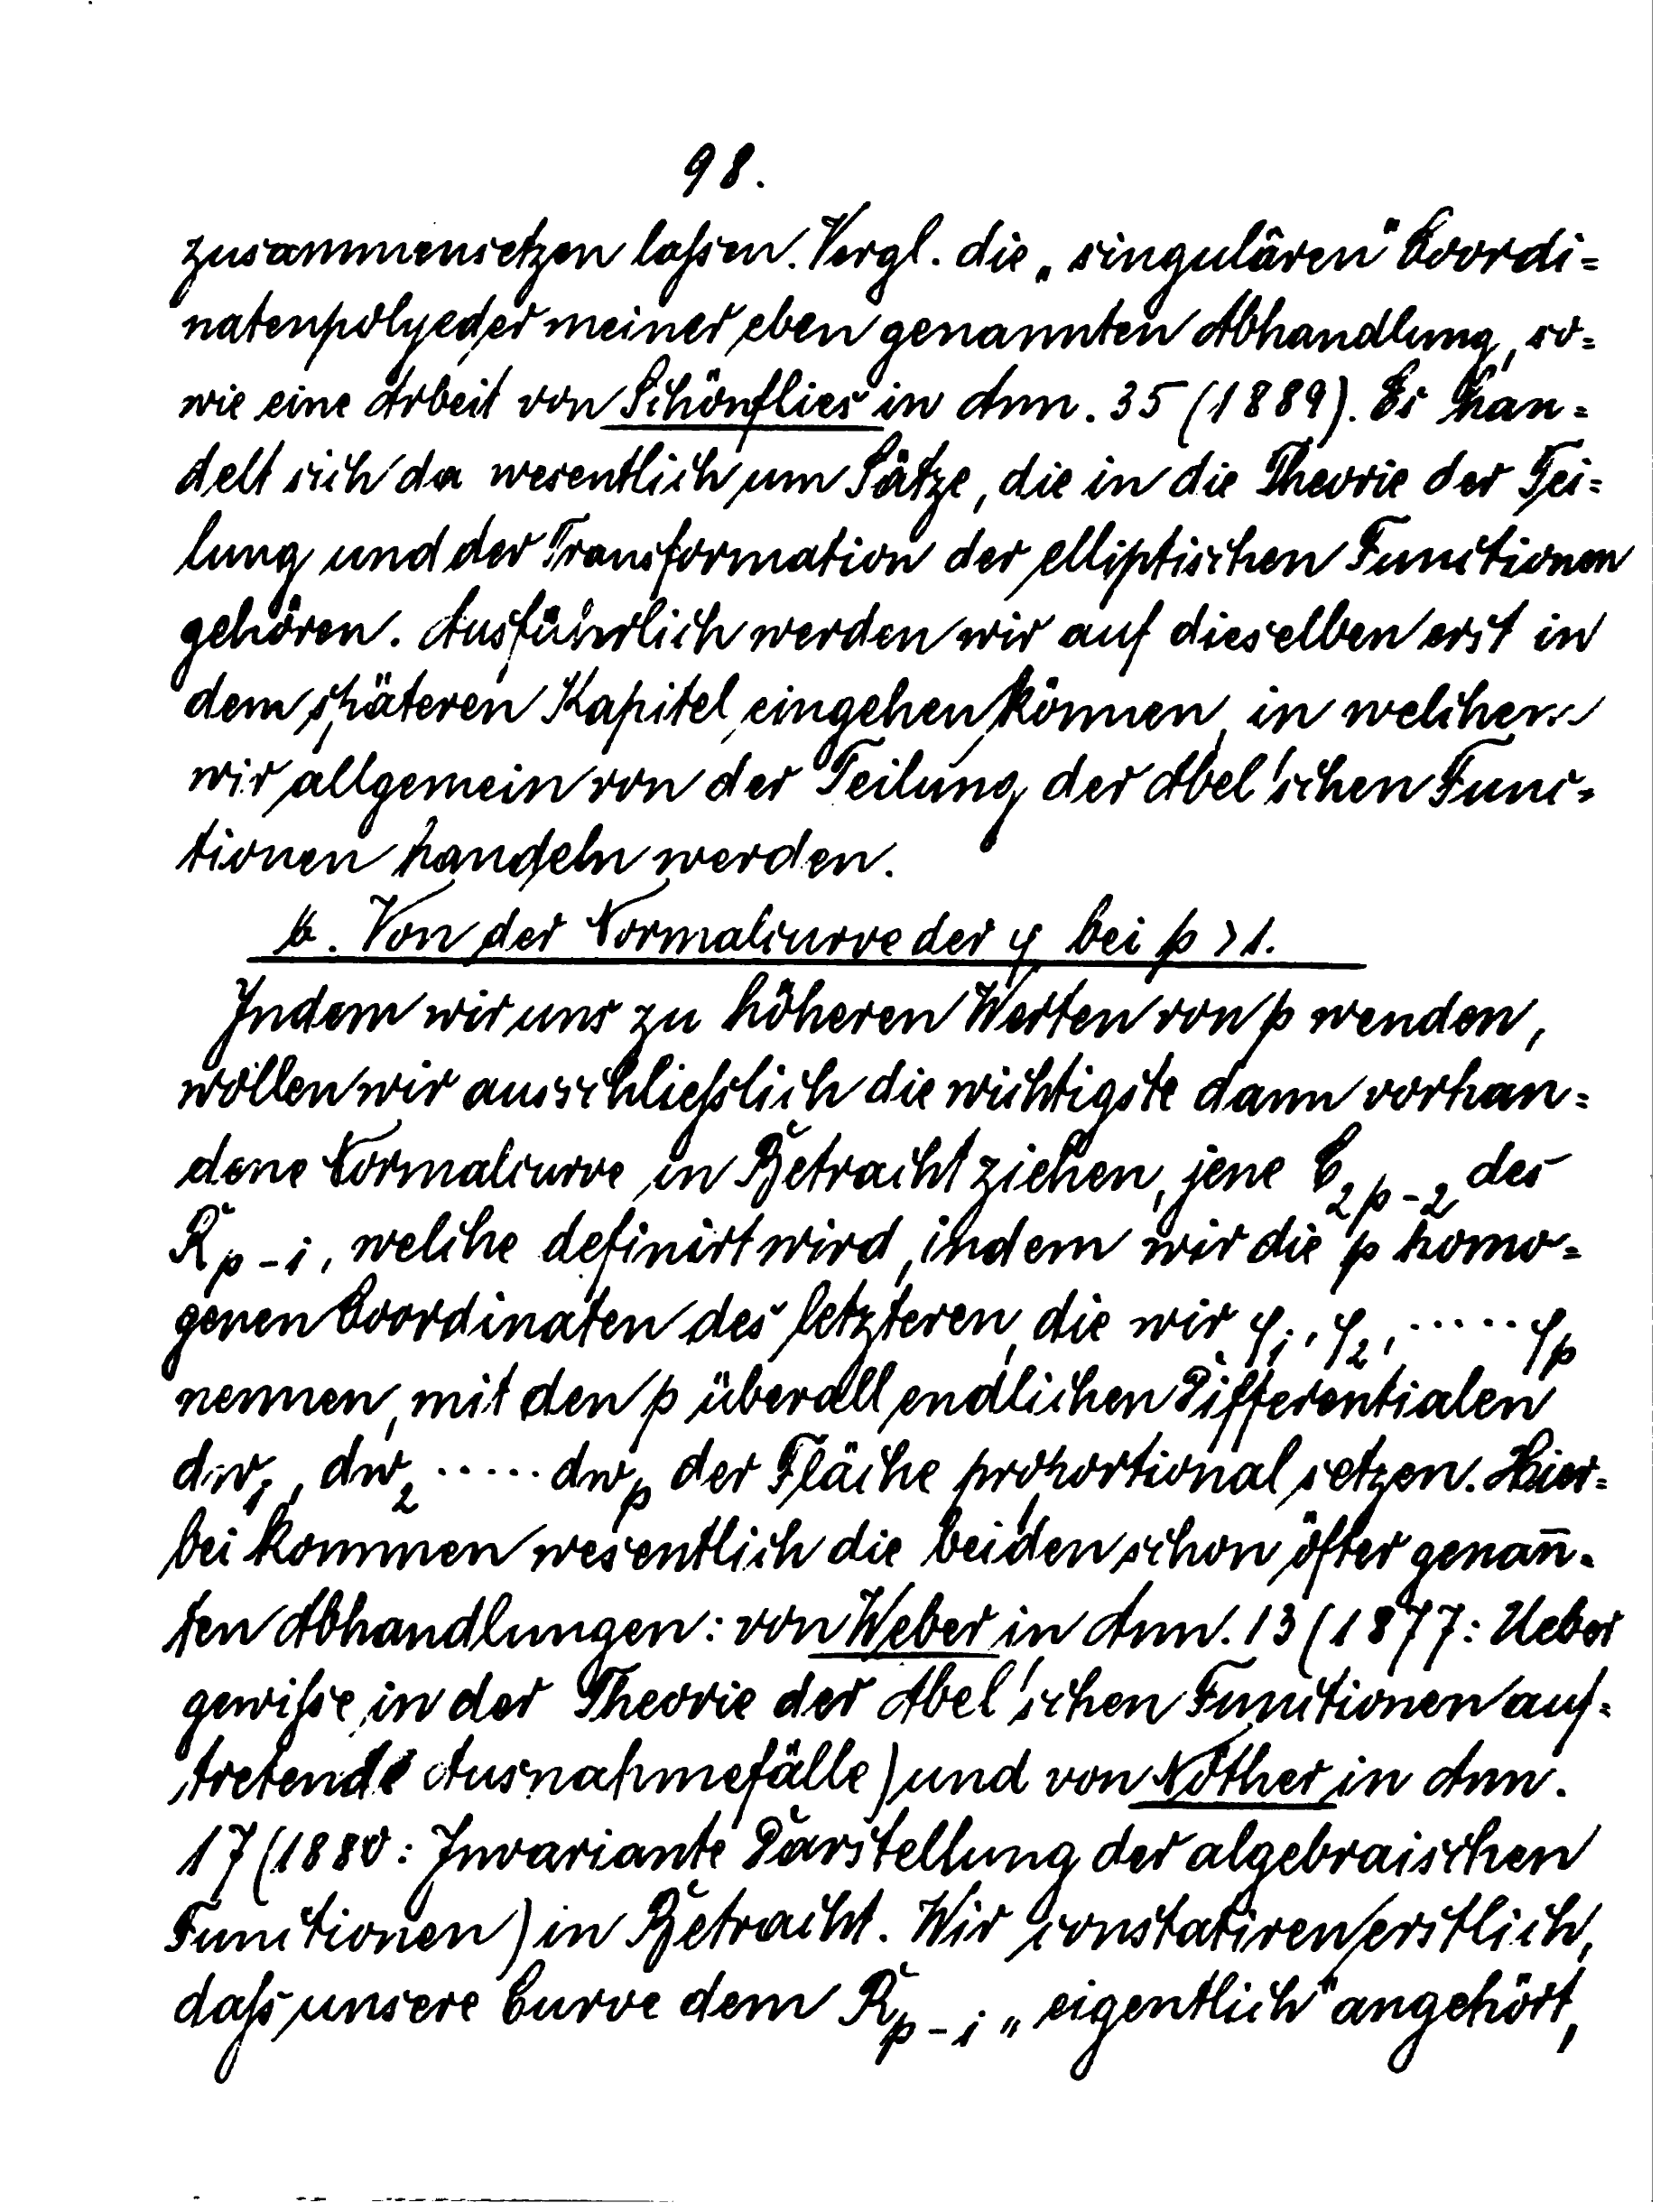 98.
zusammensetzen laſsen. Vergl. die „singulären" Coordi=
natenpolyeder meiner eben genannten Abhandlung, so=
wie eine Arbeit von Schönflies in Ann. 35 (1889). Es han=
delt sich da wesentlich um Sätze, die in die Theorie der Tei=
lung und der Transformation der elliptischen Functionen
gehören. Ausführlich werden wir auf dieselben erst in
dem späteren Kapitel eingehen können, in welchem
wir allgemein von der Teilung der Abel'schen Func=
tionen handeln werden.
b. Von der Normalcurve der φ bei p > 1.
Indem wir uns zu höheren Werten von p wenden,
wollen wir ausschlieſslich die wichtigste dann vorhan=
dene Normalcurve in Betracht ziehen, jene C₂ₚ₋₂ des
Rₚ₋₁, welche definirt wird, indem wir die p homo=
genen Coordinaten des letzteren, die wir φ₁, φ₂, ..... φₚ
nennen, mit den p überall endlichen Differentialen
dw₁, dw₂ ..... dwₚ der Fläche proportional setzen. Hier=
bei kommen wesentlich die beiden schon öfter genan̄=
ten Abhandlungen: von Weber in Ann. 13 (1877: Ueber
gewiſse in der Theorie der Abel'schen Functionen auf=
tretende Ausnahmefälle) und von Nöther in Ann.
17 (1880: Invariante Darstellung der algebraischen
Functionen) in Betracht. Wir constatiren erstlich,
daſs unsere Curve dem Rₚ₋₁ „eigentlich" angehört,